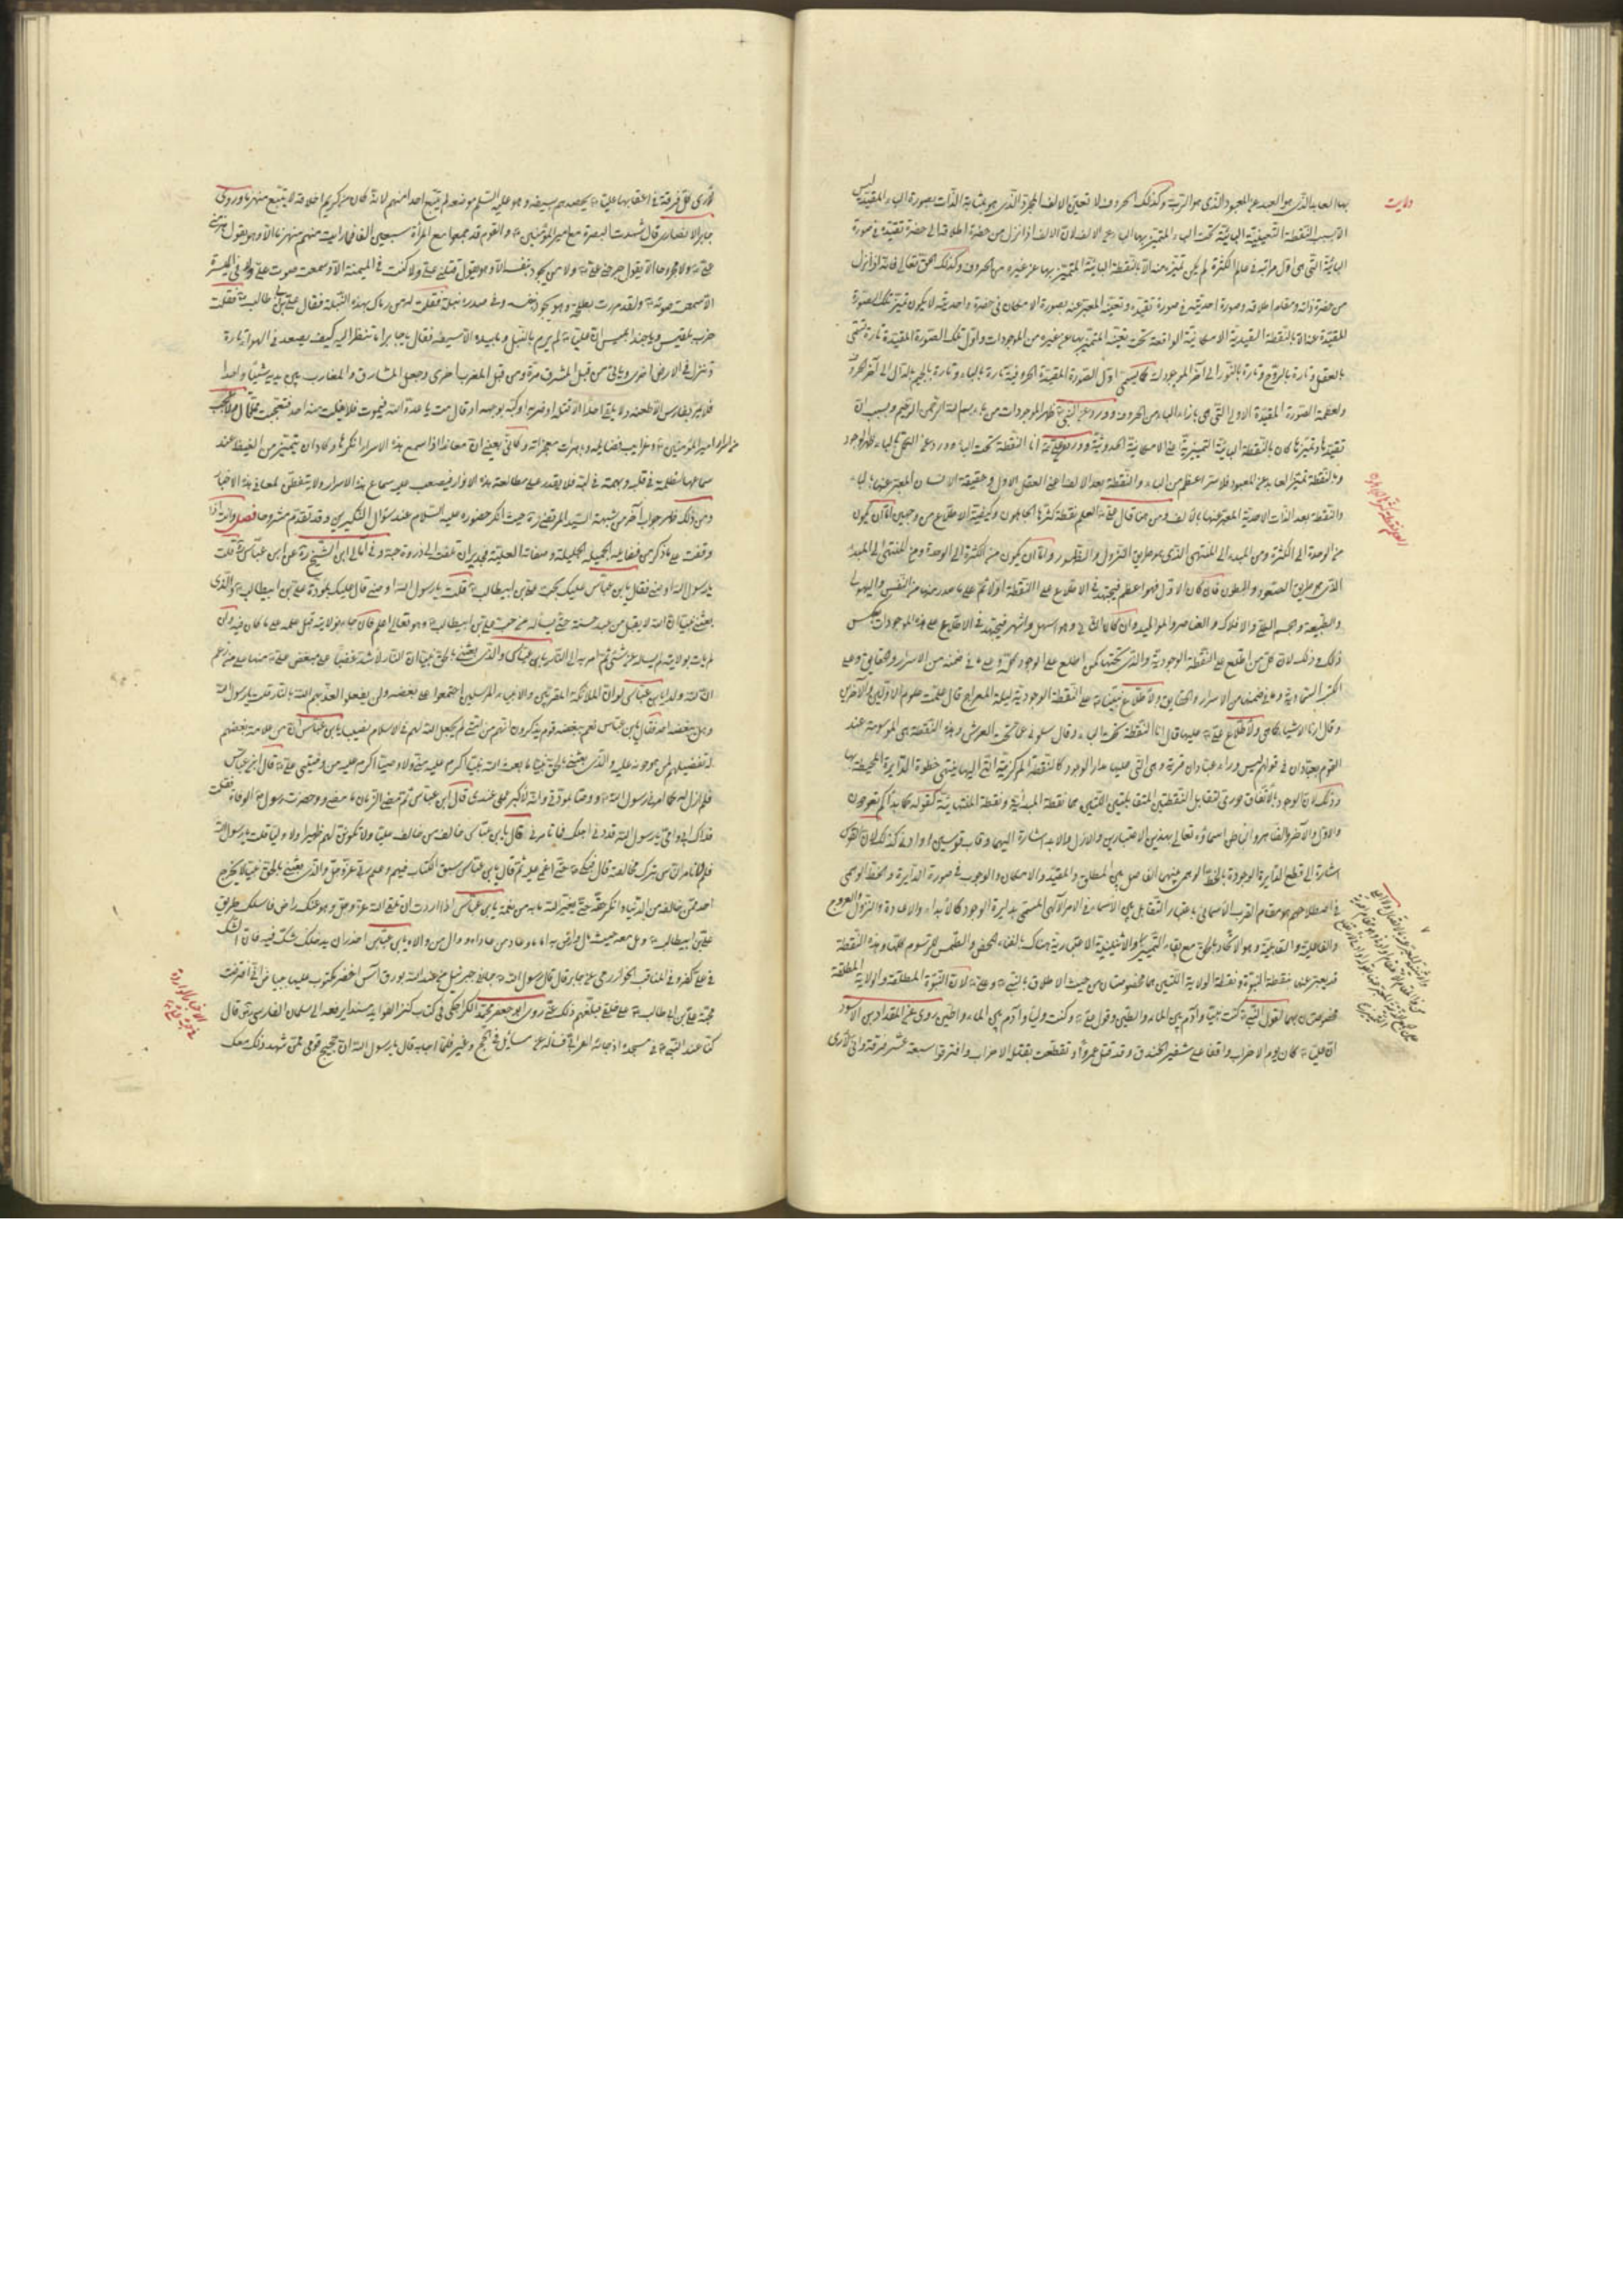 بها العابد الذى هو العبد عن المعبود الذى هو الرب وكذلك الحروف لا تعين الالف المجرد الذى هو بمثابة الذات بصورة الباء المقيد ليس
الا بسبب النقطة التعينية البائية تحت الباء المتميز بها الباء عن الالف لان الالف اذا نزل من حضرة اطلاقه الى حضرة تقيده فى صورة
البائية التى هى اول مراتبه فى عالم الكثرة لم يكن تميزه منه الا بالنقطة البائية المتميز بها عن غيره من الحروف وكذلك الحق تعالى فانه اذا نزل
من حضرة ذاته ومقام اطلاقه وصورة احديته فى صورة تقيده وتعينه المعبر عنه بصورة الامكان فى حضرة واحديته لا يكون تميز تلك الصورة
المقيدة عنه الا بالنقطة العبدية الامكانية الواقعة تحت تعينه المتميز بها عن غيره من الموجودات واول تلك الصورة المقيدة تارة تسمى
بالعقل وتارة بالروح وتارة بالنور الى آخر الموجودات كما يسمى اول الصورة المقيدة الحروفية تارة بالباء وتارة بالجيم بالدال الى آخر الحروف
ولعظمة الصورة المقيدة الاولى التى هى بازاء الباء من الحروف وورد عن النبى ظهر الموجودات من باء بسم الله الرحمن الرحيم وبسبب ان
تقيدها وتميزها كان بالنقطة البائية التمييزية اعنى الامكانية الحدوثية وورد عن على انا النقطة تحت الباء وورد عن
وبالنقطة تميز العابد عن المعبود فلا ستر اعظم من الباء والنقطة بعد الالف اعنى العقل الاول وحقيقة الانسان المعبر عنها بالباء
والنقطة بعد الذات الاحدية المعبر عنها بالالف ومن هنا قال على العلم نقطة كثرها الجاهلون وكيفية الاطلاع من وجهين اما ان يكون
من الوحدة الى الكثرة ومن المبدء الى المنتهى الذى هو طريق النزول والظهور واما ان يكون من الكثرة الى الوحدة ومن المنتهى الى المبدء
الذى هو طريق الصعود والبطون فان كان الاول فهو اعظم فيجتهد فى الاطلاع على النقطة اولا ثم على ما صدر منها من النفس والهيولى
والطبيعة والجسم الكلى والافلاك والعناصر والمواليد وان كان الثانى وهو اسهل واشهر فيجتهد فى الاطلاع على هذه الموجودات بعكس
ذلك وذلك لان كل من اطلع على النقطة الوجودية والذى تحتها كمن اطلع على الوجود كله وعلى ما فى ضمنه من الاسرار والحقايق وعلى
الكتب السماوية وما فى ضمنها من الاسرار والحقايق ولاطلاع نبينا على النقطة الوجودية ليلة المعراج قال علمت علوم الاولين والآخرين
وقال ارنا الاشياء كما هى ولاطلاع على عليها قال انا النقطة تحت الباء وقال سلونى عما تحت العرش وهذه النقطة هى الموسومة عند
القوم بعبادان فى قولهم ليس وراء عبادان قرية وهى التى عليها مدار الوجود كالنقطة المركزية التى اليها ينتهى خطوط الدايرة المحيطة بها
وذلك لان الوجود بالاتفاق دورى لتقابل النقطتين المتقابلتين اللتين هما نقطة المبدئية ونقطة المنتهائية كقوله كما بدأكم تعودون
والاول والآخر والظاهر والباطن اسماؤه تعالى بهذين الاعتبارين والازل والابد اشارة اليهما وقاب قوسين او ادنى كذلك لان القوس
اشارة الى قطع الدايرة الوجودية بالخط الوهمى بينهن الفاصل بين المطلق والمقيد والامكان والوجوب فى صورة الدايرة والخط الوهمى
فى اصطلاحهم هو مقام القرب الاسمائى باعتبار التقابل بين الاسماء فى الامر الالهى المسمى بدايرة الوجود كالابداء والاعادة والنزول والعروج
والفاعلية والقابلية وهو الاتحاد بالحق مع بقاء التمييز والاثنينية الاعتبارية هناك بالفناء المحض والطمس الكلى للرسوم كلها وهذه النقطة
قد يعبر عنها بنقطة النبوة ونقطة الولاية اللتين هما مخصوصتان من حيث الاطلاق بالنبى وعلى لان النبوة المطلقة والولاية المطلقة
مخصوصتان بهما لقول النبى كنت نبيا وآدم بين الماء والطين وقول على وكنت وليا وآدم بين الماء والطين روى عن المقداد بن الاسود
ان عليا كان يوم الاحزاب واقفا على شفير الخندق وقد قتل عمروا وتقطعت بقتله الاحزاب وافترقوا سبعة عشر فرقة وانى لأرى
لأرى كل فرقة فى اعقابها عليا يحصدهم بسيفه وهو عليه السلم موضعه لم يتبع احدا منهم لانه كان من كريم اخلاقه لا يتبع منهزما وروى
جابر الانصارى قال شهدت البصرة مع امير المؤمنين والقوم قد جمعوا مع المرأة سبعين الفا فما رايت منهم منهزما الا وهو يقول هزمنى
على ولا مجروحا الا يقول جرحنى على ولا من يجود بنفسه الا وهو يقول قتلنى على ولا كنت فى الميمنة الا وسمعت صوت على ولا فى الميسرة
الا سمعت صوته ولقد مررت بطلحة وهو يجود بنفسه وفى صدره نبلة فقلت له من رماك بهذه النبلة فقال على بن ابى طالب فقلت
حزب بلقيس وياجند ابليس ان عليا لم يرم بالنبل وما بيده الا سيفه فقال يا جابر اما تنظر اليه كيف يصعد فى الهواء تارة
وينزل فى الارض اخرى ويأتى من قبل المشرق مرة ومن قبل المغرب اخرى وجعل المشارق والمغارب بين يديه شيئا واحدا
فلا يمر بفارس الا طعنه ولا يلقى احدا الا قتله او ضربه او كبه بوجهه او قال مت يا عدو الله فيموت فلا يفلت منه احد فتعجبت مما قال ولا عجب
من اسرار امير المؤمنين وغرايب فضائله وباهرات معجزاته
سماعها لظلمة فى قلبه وبهمة فى لبه فلا يقدر على مطالعة هذه الانوار فيصعب عليه سماع هذه الاسرار ولا يتفطن لمعانى هذه الاخبار
ومن ذلك ظهر جواب آخر من شبهة السيد المرتضى ره حيث انكر حضوره عليه السلام عند سؤال النكيرين وقد تقدم مشروحا فصل وانت اذا
وقفت على ما ذكر من فضايله الجميلة الجليلة وصفاته العلية
يا رسول الله اوصنى فقال يا بن عباس عليك بحب على بن ابيطالب قلت يا رسول الله اوصنى قال عليك بمودة على بن ابيطالب والذى
بعثنى نبيا ان الله لا يقبل من عبد حسنة حتى يسأله عن حب على بن ابيطالب وهو تعالى اعلم فان جاء بولايته قبل عمله على ما كان فيه وان
لم يأت بولايته لم يسأله عن شئ ثم امر به الى النار يا بن عباس والذى بعثنى بالحق نبيا ان النار لأشد غضبا على مبغض على منها على من زعم
ان لله ولدا يا بن عباس لو ان الملائكة المقربين والانبياء المرسلين اجتمعوا على بغضه ولن يفعلوا لعذبهم الله بالنار قلت يا رسول الله
وهل يبغضه احد فقال يا بن عباس نعم يبغضه قوم يذكرون انهم من امتى لم يجعل الله لهم فى الاسلام نصيب يا بن عباس ان من علامة بغضهم
له تفضيلهم لمن هو دونه عليه والذى بعثنى بالحق نبيا ما بعث الله نبيا اكرم عليه منى ولا وصيا اكرم عليه من وصيى على قال ابن عباس
فلم ازل له كما امرنى رسول الله ووصانى بمودته وانه لأكبر عملى عندى قال ابن عباس ثم مضى من الزمان ما مضى وحضرت رسول الله الوفاة فقلت
فداك ابى وامى يا رسول الله قد دنى اجلك فما تأمرنى قال يا بن عباس خالف من خالف عليا ولا تكونن لهم ظهيرا ولا وليا قلت يا رسول الله
فلم لا تأمر الناس بترك مخالفته قال فبكى حتى اغمى عليه ثم قال يا بن عباس سبق الكتاب فيهم وعلم ربى عز وجل والذى بعثنى بالحق نبيا لا يخرج
احد ممن خالفه من الدنيا وانكر حقه حتى يغير الله ما به من نعمة يا بن عباس اذا اردت ان تلقى الله عز وجل وهو عنك راض فاسلك طريق
على بن ابيطالب ومل معه حيث مال وارض به اماما وعاد من عاداه ووال من والاه يا بن عباس احذر ان يدخلك شك فيه فان الشك
فى على كفر وفى المناقب الخوارزمى عن جابر قال قال رسول الله جاءنى جبرئيل من عند الله بورق آس اخضر مكتوب عليها ببياض انى افترضت
محبة على بن ابى طالب على خلقى فبلغهم ذلك عنى روى ابو جعفر محمد الكراجكى فى كتاب كنز الفوايد مسندا يرفعه الى سلمان الفارسى رض قال
كنا عند النبى فى مسجده اذ جاء اعرابى فساله عن مسايل فى الحج وغيره فلما اجابه قال يا رسول الله ان حجيج قومى ممن شهد ذلك معك